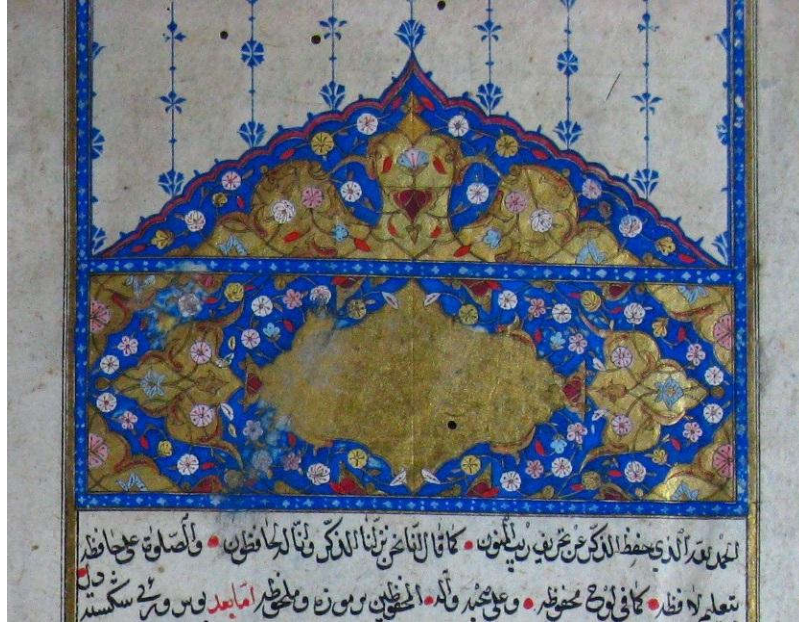 الحمد لله الذي حفظ الذكر عن تحريف ريب المنون • كما قال انا نحن نزلنا الذكر وانا له لحافظون • والصلوة على حافظه
بتعليم لافظه • كما في لوح محفوظه • وعلى صحبه وآله • المحفوظين برموزه وملحوظه اما بعد بو سورئ شكسته دل